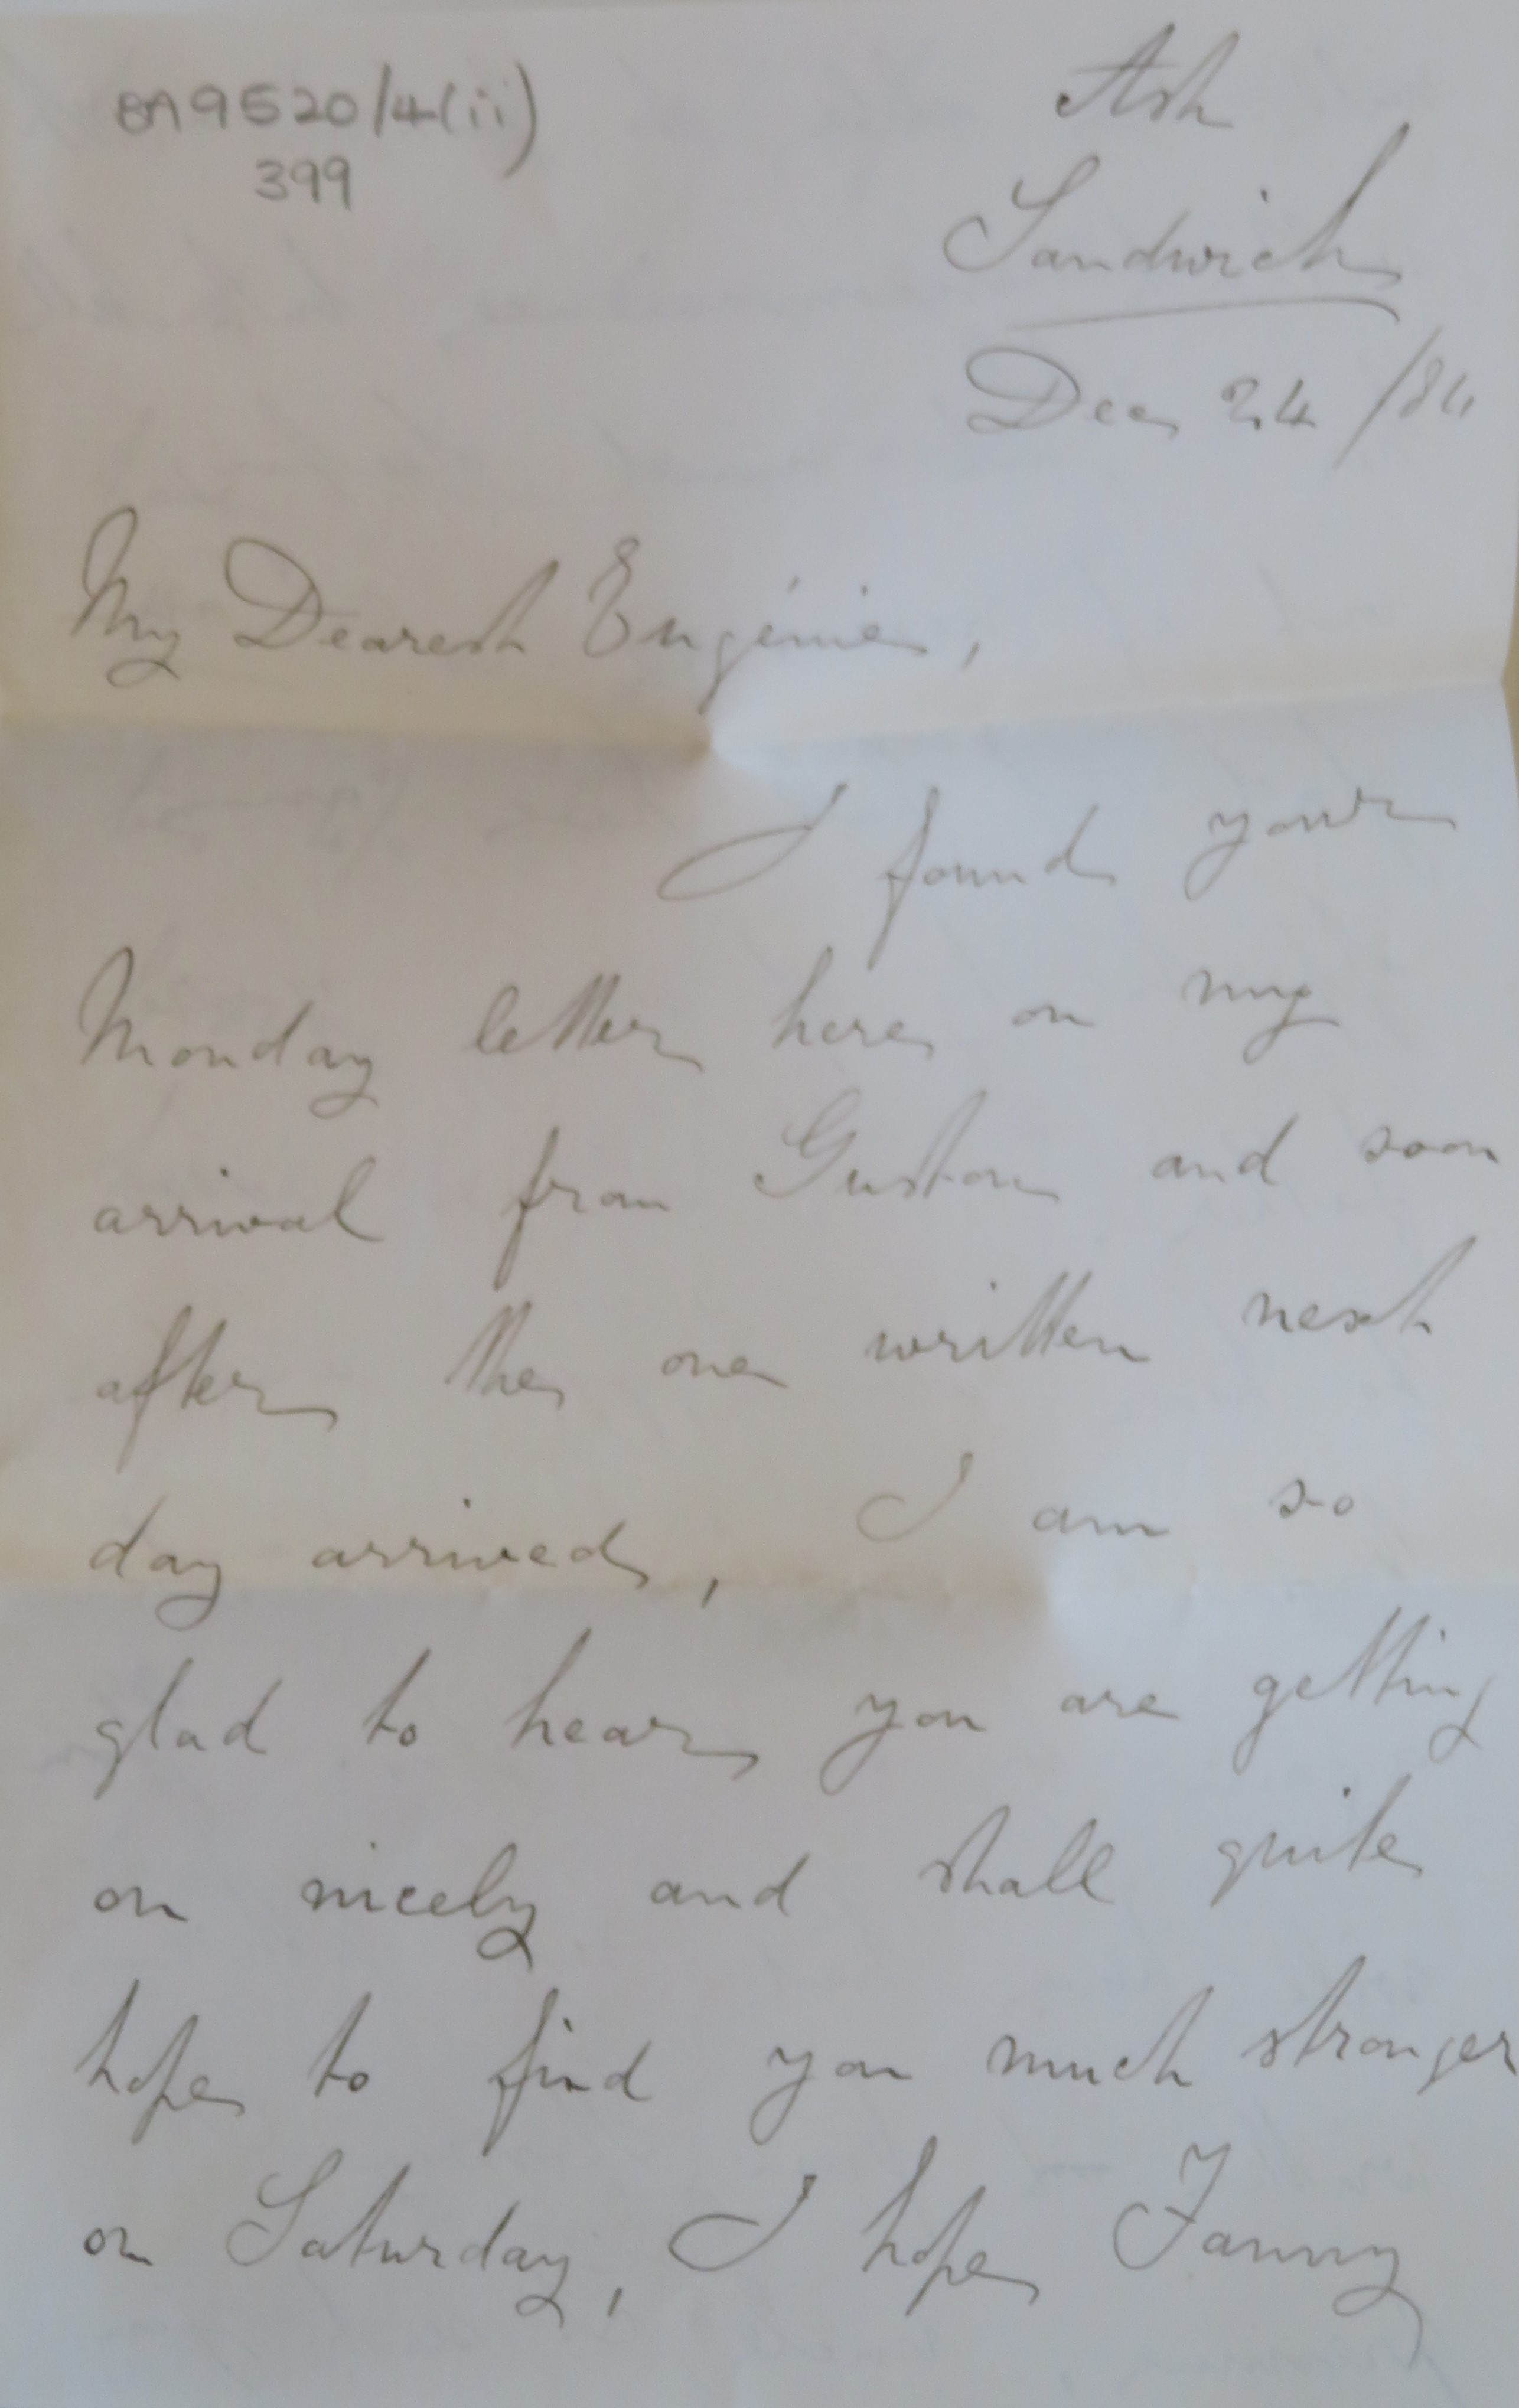 BA9520/4(ii)
399
Ash
Sandwich
Dec 24 /84
My Dearest Eugénie,
I found your
Monday letter here on my
arrival from Guston and soon
after the one written next
day arrived, I am so
glad to hear you are getting
on nicely and shall quite
hope to find you much stronger
on Saturday, I hope Fanny